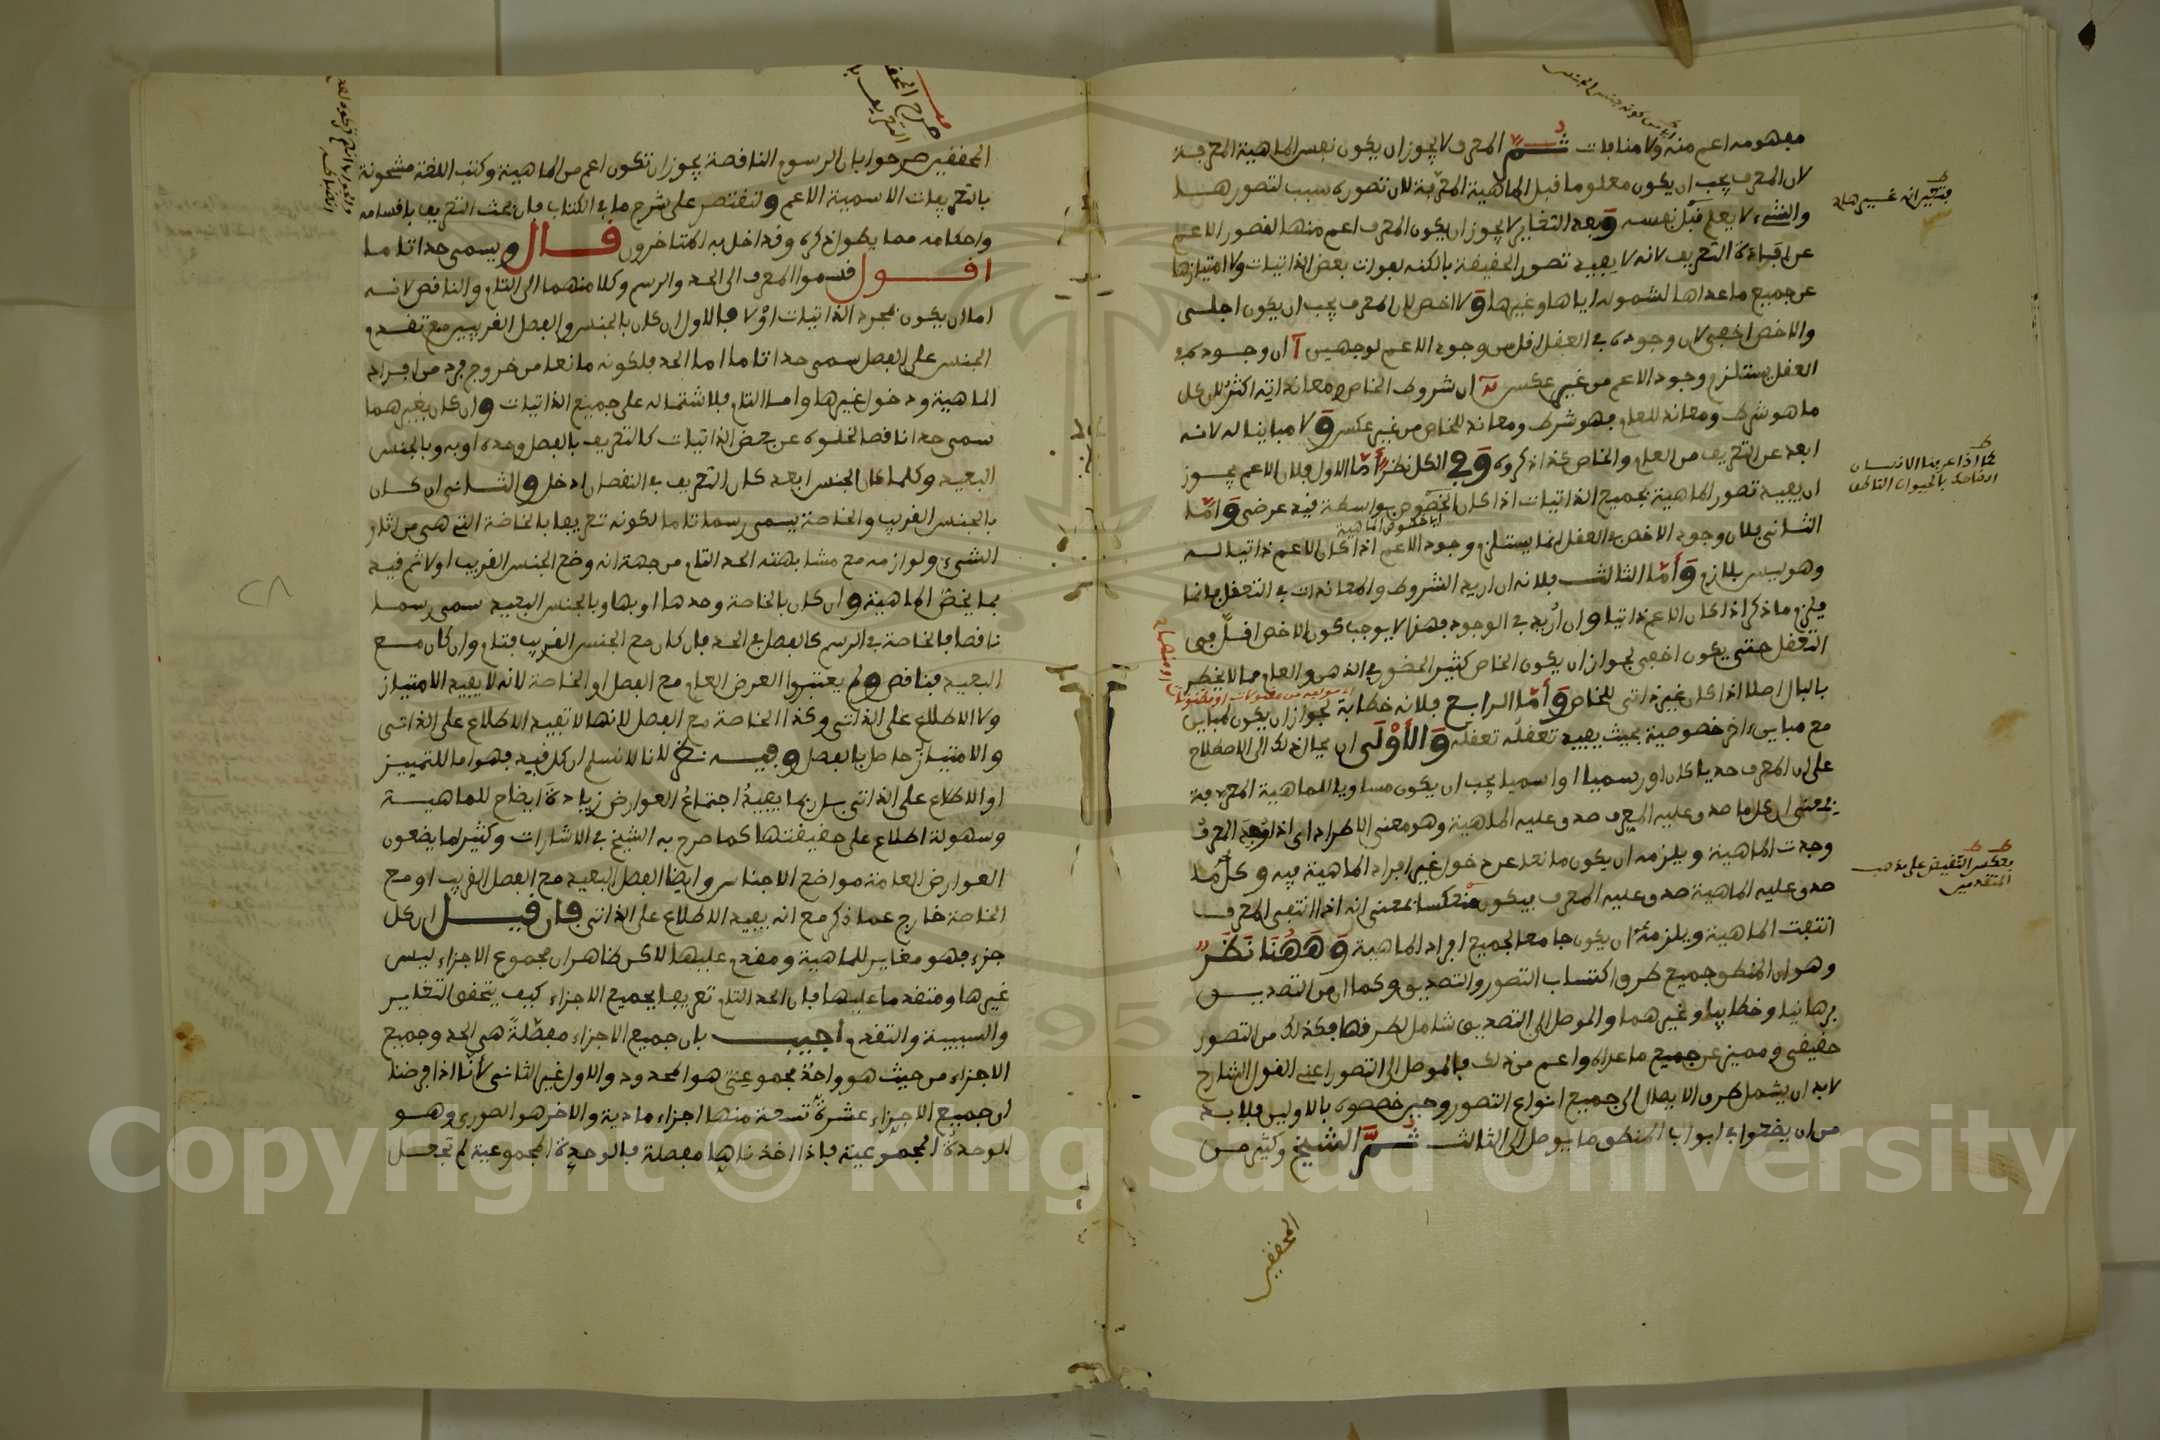 مفهومه اعم منه ولا منافات ثم المعرف لا يجوز ان يكون نفس الماهية المعرفة
لان المعرف يجب ان يكون معلوما قبل الماهية المعرفة لان تصوره سبب لتصورها
والشيء لا يعلم قبل نفسه وبعد التغاير لا يجوز ان يكون المعرف اعم منها لقصور الاعم
عن افادة التعريف لانه لا يفيد تصور الحقيقة بالكنه لفوات بعض الذاتيات ولا امتيازها
عن جميع ما عداها لشموله اياها وغيرها ولا اخص لان المعرف يجب ان يكون اجلى
والاخص اخفى لان وجوده في العقل اقل من وجود الاعم لوجهين آ ان وجوده في
العقل يستلزم وجود الاعم من غير عكس ب ان شروط الخاص ومعانداته اكثر لان كل
ما هو شرط ومعاند للعام فهو شرط ومعاند للخاص من غير عكس ولا مباينا له لانه
ابعد عن التعريف من العام والخاص كذا ذكروه وفي الكل نظر أما الاول فلان الاعم يجوز
ان يفيد تصور الماهية بجميع الذاتيات اذا كان الخصوص بواسطة قيد عرضي واما
الثاني فلان وجود الاخص في العقل انما يستلزم وجود الاعم اذا كان الاعم ذاتيا له
وهو ليس بلازم وأما الثالث فلانه ان اريد الشروط والمعاندات في التعقل فانما
يلزم ما ذكر اذا كان الاعم ذاتيا وان أريد في الوجود فهذا لا يوجب كون الاخص اقل في
التعقل حتى يكون اخفى لجواز ان يكون الخاص كثير الحضور في الذهن والعام مما لا يخطر
بالبال اصلا اذا كان غير ذاتي للخاص وأما الرابع فلانه خطابة لجواز ان يكون لمباين
مع مباين اخر خصوصية بحيث يفيد تعقله تعقله والأولى ان يحال ذلك الى الاصطلاح
على ان المعرف حديا كان او رسميا او اسميا يجب ان يكون مساويا للماهية المعرفة
بمعنى ان كل ما صدق عليه المعرف صدق عليه الماهية وهو معنى الاطراد اى اذا وجد المعرف
وجدت الماهية ويلزمه ان يكون مانعا عن دخول غير افراد الماهية فيه وكل ما
صدق عليه الماهية صدق عليه المعرف فيكون منعكسا بمعنى انه اذا انتفى المعرف
انتفت الماهية ويلزمه ان يكون جامعا لجميع افراد الماهية وههنا نظر
وهو ان المنطق جميع طرق اكتساب التصور والتصديق وكما ان من التصديق
برهانيا وخطابيا وغيرهما والموصل الى التصديق شامل لطرقها فكذلك من التصور
حقيقي ومميز عن جميع ما عداه واعم من ذلك فالموصل الى التصور اعني القول الشارح
لا بد ان يشمل طرق الايصال الى جميع انواع التصور وحين خصصوه بالاولين فلا بد
من ان يضعوا في ابواب المنطق ما يوصل الى الثالث ثم الشيخ وكثير من
المحققين
فتعين انه غيرها
كما اذا عرفنا الانسان
بالحيوان الناطق
بعكس النقيض على مذهب
المتقدمين
المحققين صرحوا بان الرسوم الناقصة يجوز ان تكون اعم من الماهية وكتب اللغة مشحونة
بالتعريفات الاسمية الاعم ولنقتصر على شرح ما في الكتاب فان بحث التعريف باقسامه
واحكامه مما يطول ذكره وقد اخل به المتاخرون قال ويسمى حدا تاما
اقول قسموا المعرف الى الحد والرسم وكلا منهما الى التام والناقص لانه
اما ان يكون بمجرد الذاتيات أو لا فالاول ان كان بالجنس والفصل القريبين مع تقدم
الجنس على الفصل سمى حدا تاما اما الحد فلكونه مانعا من خروج فرد من افراد
الماهية ودخول غيرها واما التام فلاشتماله على جميع الذاتيات وان كان بغيرهما
سمى حدا ناقصا لخلوه عن بعض الذاتيات كالتعريف بالفصل وحده او به وبالجنس
البعيد وكلما كان الجنس ابعد كان التعريف في النقصان ادخل والثاني ان كان
بالجنس القريب والخاصة يسمى رسما تاما لكونه تعريفا بالخاصة التي هي من اثار
الشيء ولوازمه مع مشابهته الحد التام من جهة انه وضع الجنس القريب اولا ثم قيد
بما يخص الماهية وان كان بالخاصة وحدها او بها وبالجنس البعيد سمى رسما
ناقصا فالخاصة في الرسم كالفصل في الحد فان كان مع الجنس القريب فتام وان كان مع
البعيد فناقص ولم يعتبروا العرض العام مع الفصل او الخاصة لانه لا يفيد الامتياز
ولا الاطلاع على الذاتي وكذا الخاصة مع الفصل لانها لا تفيد الاطلاع على الذاتي
والامتياز حاصل بالفصل وفيه نظر لانا لا نسلم ان كل قيد فهو اما للتمييز
او الاطلاع على الذاتي بل ربما يفيد اجتماع العوارض زيادة ايضاح للماهية
وسهولة اطلاع على حقيقتها كما صرح به الشيخ في الاشارات وكثيرا ما يضعون
العوارض العامة مواضع الاجناس وايضا الفصل البعيد مع الفصل القريب او مع
الخاصة خارج عما ذكر مع انه يفيد الاطلاع على الذاتي فان قيل ان كل
جزء فهو مغاير للماهية ومقدم عليها لاكن ظاهر ان مجموع الاجزاء ليس
غيرها ومتقدما عليها فان الحد التام تعريف بجميع الاجزاء كيف يتحقق التغاير
والسببية والتقدم أجيب بان جميع الاجزاء مفصلة هي الحد وجميع
الاجزاء من حيث هو واحد مجموعي هو المحدود والاول غير الثاني لأنا اذا فرضنا
ان جميع الاجزاء عشرة تسعة منها اجزاء مادية والاخر هو الصوري وهو
الوحدة المجموعية فاذا اخذناها مفصلة فالوحدة المجموعية لم تجعل
Copyright © King Saud University